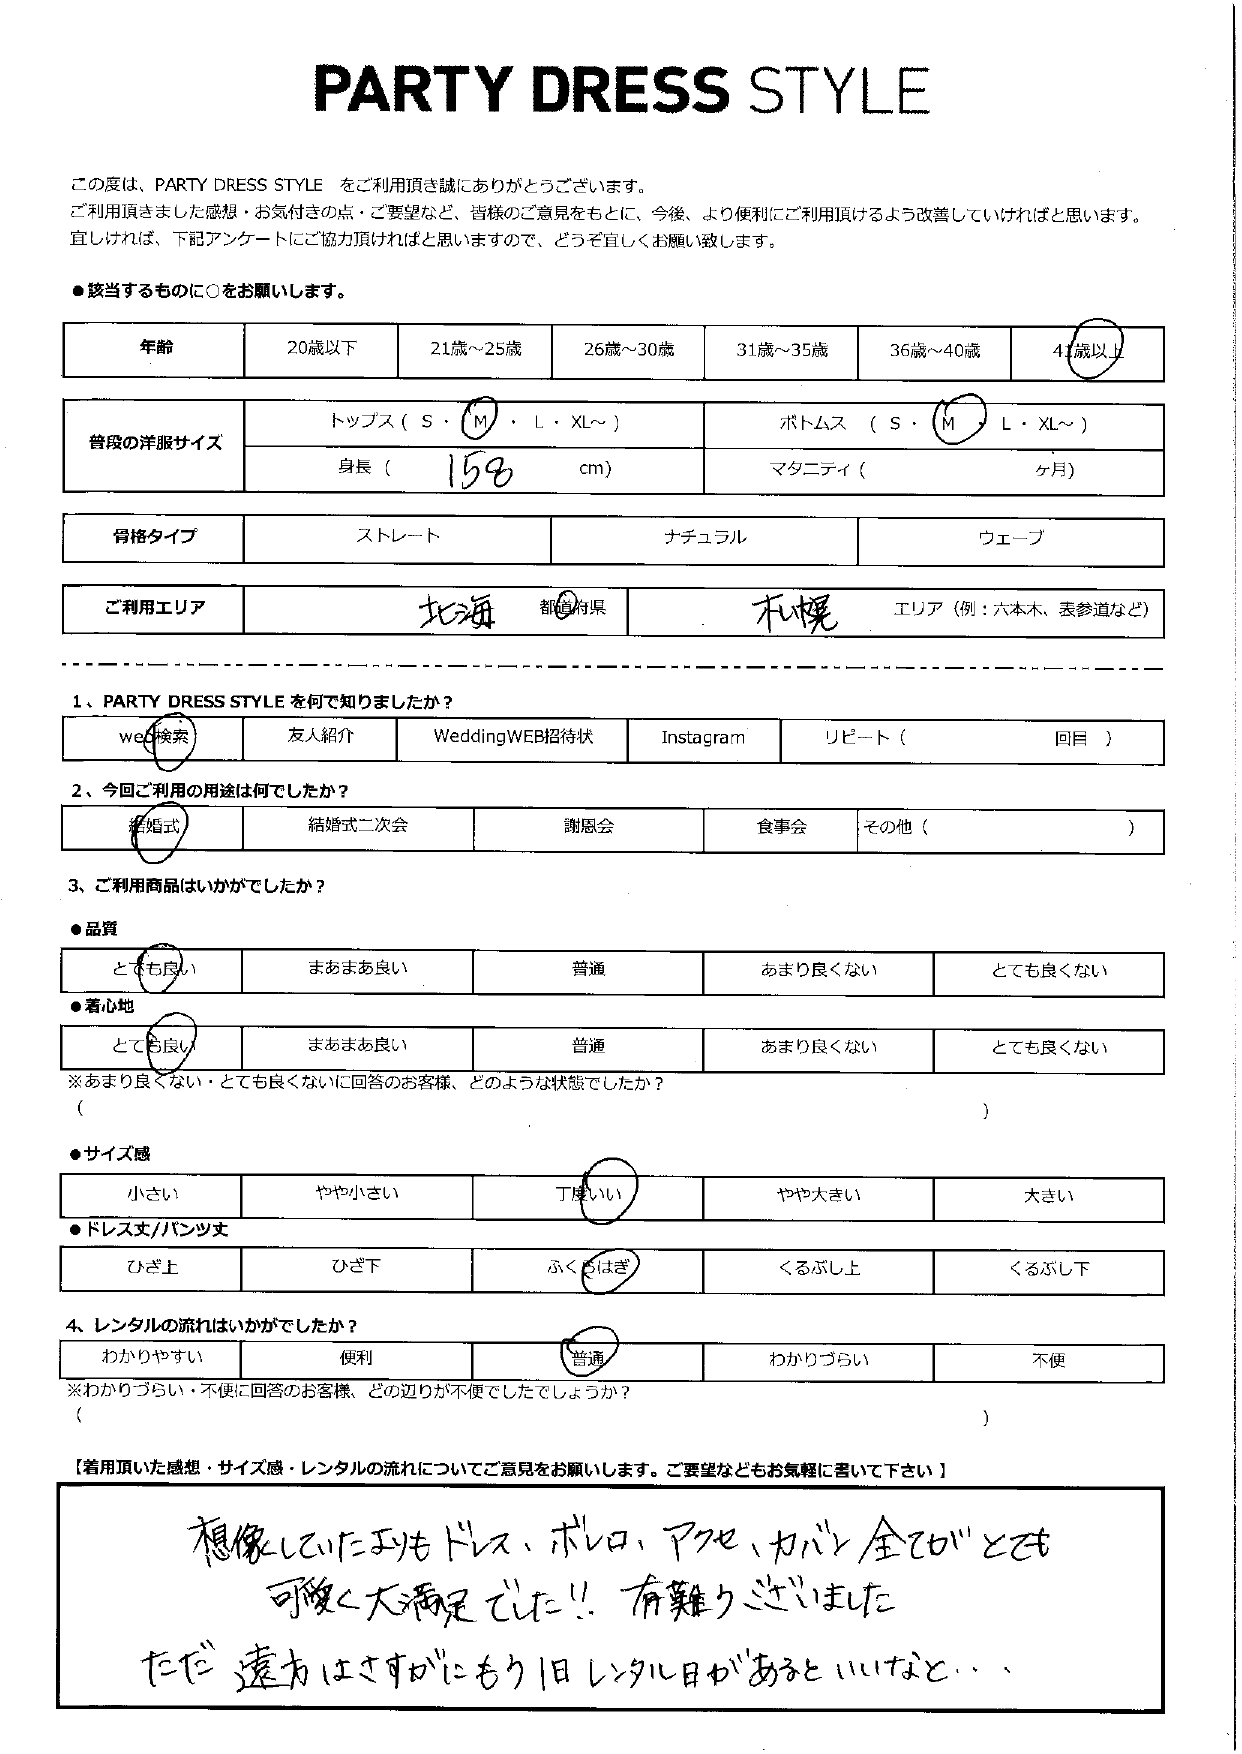 PARTY DRESS STYLE
この度は、PARTY DRESS STYLE をご利用頂き誠にありがとうございます。
ご利用頂きました感想・お気付きの点・ご要望など、皆様のご意見をもとに、今後、より便利にご利用頂けるよう改善していければと思います。
宜しければ、下記アンケートにご協力頂ければと思いますので、どうぞ宜しくお願い致します。
●該当するものに○をお願いします。
年齢 20歳以下 21歳～25歳 26歳～30歳 31歳～35歳 36歳～40歳 41歳以上
普段の洋服サイズ トップス ( S ・ M ・ L ・ XL～ ) ボトムス ( S ・ M ・ L ・ XL～ )
身長 ( 158 cm) マタニティ ( ヶ月)
骨格タイプ ストレート ナチュラル ウェーブ
ご利用エリア 北海 都道府県 札幌 エリア（例：六本木、表参道など）
1、PARTY DRESS STYLE を何で知りましたか？
web検索 友人紹介 WeddingWEB招待状 Instagram リピート ( 回目 )
2、今回ご利用の用途は何でしたか？
結婚式 結婚式二次会 謝恩会 食事会 その他 ( )
3、ご利用商品はいかがでしたか？
●品質
とても良い まあまあ良い 普通 あまり良くない とても良くない
●着心地
とても良い まあまあ良い 普通 あまり良くない とても良くない
※あまり良くない・とても良くないに回答のお客様、どのような状態でしたか？
( )
●サイズ感
小さい やや小さい 丁度いい やや大きい 大きい
●ドレス丈/パンツ丈
ひざ上 ひざ下 ふくらはぎ くるぶし上 くるぶし下
4、レンタルの流れはいかがでしたか？
わかりやすい 便利 普通 わかりづらい 不便
※わかりづらい・不便に回答のお客様、どの辺りが不便でしたでしょうか？
( )
【着用頂いた感想・サイズ感・レンタルの流れについてご意見をお願いします。ご要望などもお気軽に書いて下さい】
想像していたよりもドレス、ボレロ、アクセ、カバン全てがとても
可愛く大満足でした!! 有難うございました
ただ遠方はさすがにもう1日レンタル日があるといいなと・・、